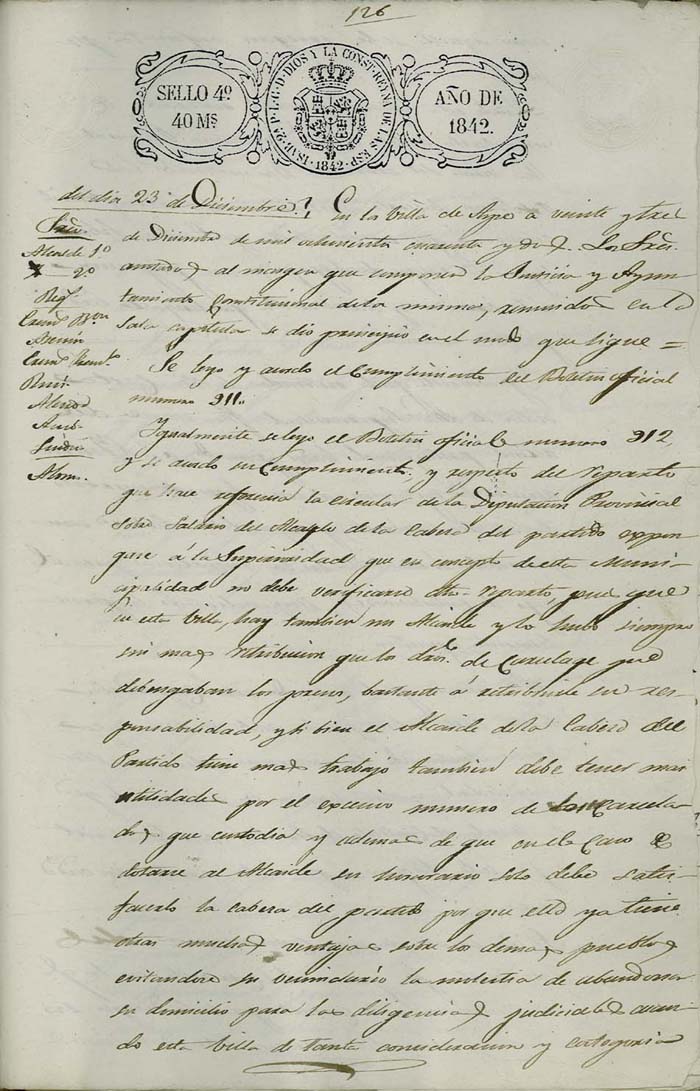 126
SELLO 4º
40 Ms
ISAB. 2ª P. L. G. D. DIOS Y LA CONST. REYNA DE LAS ESP.
1842
AÑO DE
1842.
del dia 23 de Diciembre
Sres.
Alcalde 1º
2º
Regs
Síndico
En la Villa de Aspe a veinte y tres
de Diciembre de mil ochocientos cuarenta y dos. Los Sres.
anotados al margen que componen la Justicia y Ayun
tamiento Constitucional de la misma, reunidos en la
Sala capitular se dio principio en el modo que sigue =
Se leyo y acordo el Cumplimiento del Boletin oficial
numero 911.
Igualmente se leyo el Boletin oficial numero 912,
y se acordo su Cumplimiento y respecto del reparto
que hace referencia la circular de la Diputacion Provincial
sobre Salario del Alcayde de la Cabeza del partido expon
gase á la Superioridad que en concepto de esta Muni-
cipalidad no debe verificarse dho. reparto, pues que
en esta Villa, hay tambien un Alcaide y lo hubo siempre
sin mas retribucion que los dros. de Carcelage que
devengaban los presos, bastante á retribuirle su res-
ponsabilidad, y si bien el Alcaide de la Cabeza del
Partido tiene mas trabajo tambien debe tener mas
utilidades por el excesivo numero de encarcela
dos que custodia y ademas de que en el Caso de
dotarse al Alcaide su honorario solo debe satis-
facerlo la Cabeza del partido por que ella ya tiene
otras muchas ventajas sobre los demas pueblos
evitandose su vecindario la molestia de abandonar
su domicilio para las diligencias judiciales cuan-
do esta Villa de tanta consideracion y categoria